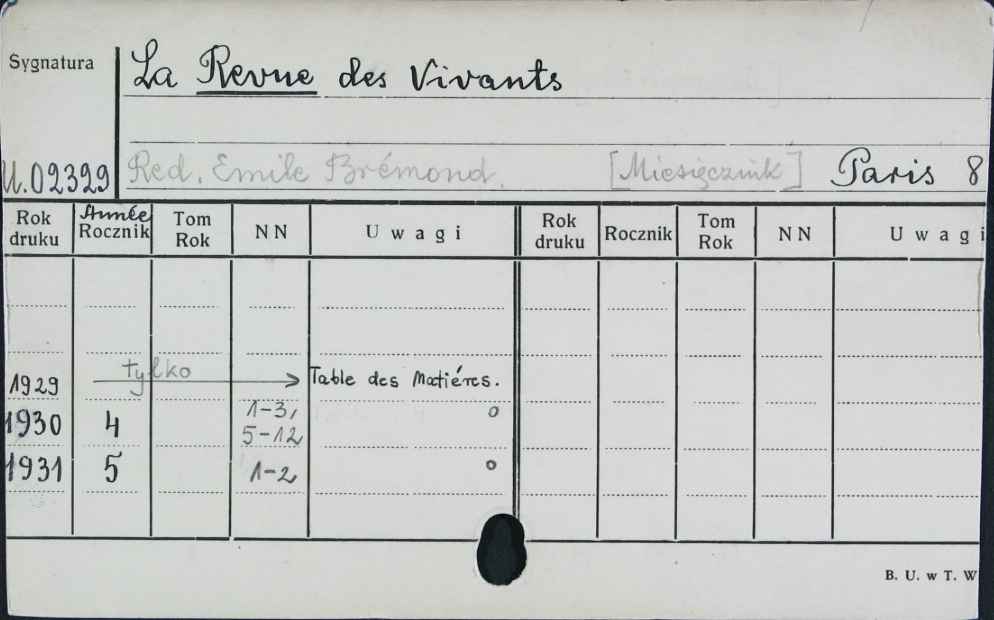 Sygnatura La Revue des Vivants
U.02329 Red. Emile Brémond. [Miesięcznik] Paris 8
Rok druku Année Rocznik Tom Rok NN Uwagi Rok druku Rocznik Tom Rok NN Uwagi
1929 tylko Table des Matiéres.
1930 4 1-3, 5-12 o
1931 5 1-2 o
B. U. w T. W